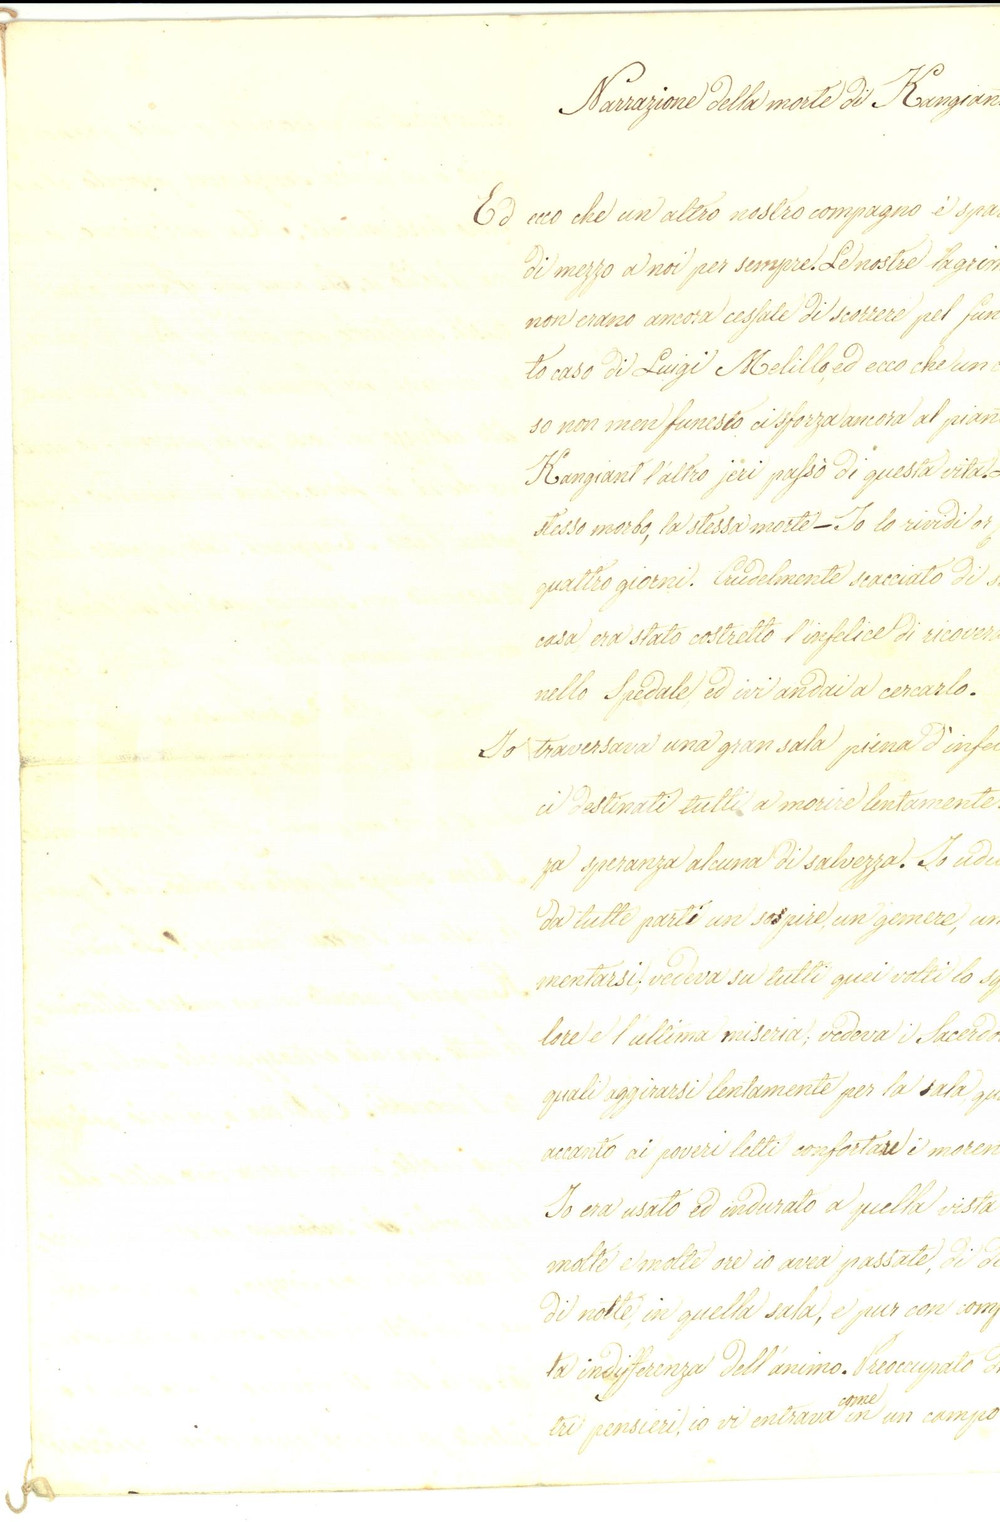 Narrazione della morte di Kangian
Ed ecco che un altro nostro compagno è spar
di mezzo a noi per sempre. Le nostre lagrim
non erano ancora cessate di scorrere pel fun
to caso di Luigi Melillo, ed ecco che un c
so non men funesto ci sforza ancora al pian
Kangiant l'altro jeri passò di questa vita.—
stesso morbo, la stessa morte — Io lo rividi or
quattro giorni. Crudelmente scacciato di s
casa, era stato costretto l'infelice di ricovera
nello Spedale, ed ivi andai a cercarlo.
Io traversava una gran sala piena d'infeli
ci destinati tutti a morire lentamente
za speranza alcuna di salvezza. Io udi
da tutte parti un sospire, un gemere, un
mentarsi; vedeva su tutti quei volti lo sq
lore e l'ultima miseria; vedeva i Sacerdo
quali aggirarsi lentamente per la sala, qu
accanto ai poveri letti confortare i moren
Io era usato ed indurato a quella vista
molte e molte ore io avea passate, di di
di notte, in quella sala, e pur con comp
ta indifferenza dell'animo. Preoccupato
tri pensieri, io vi entrava come in un campo